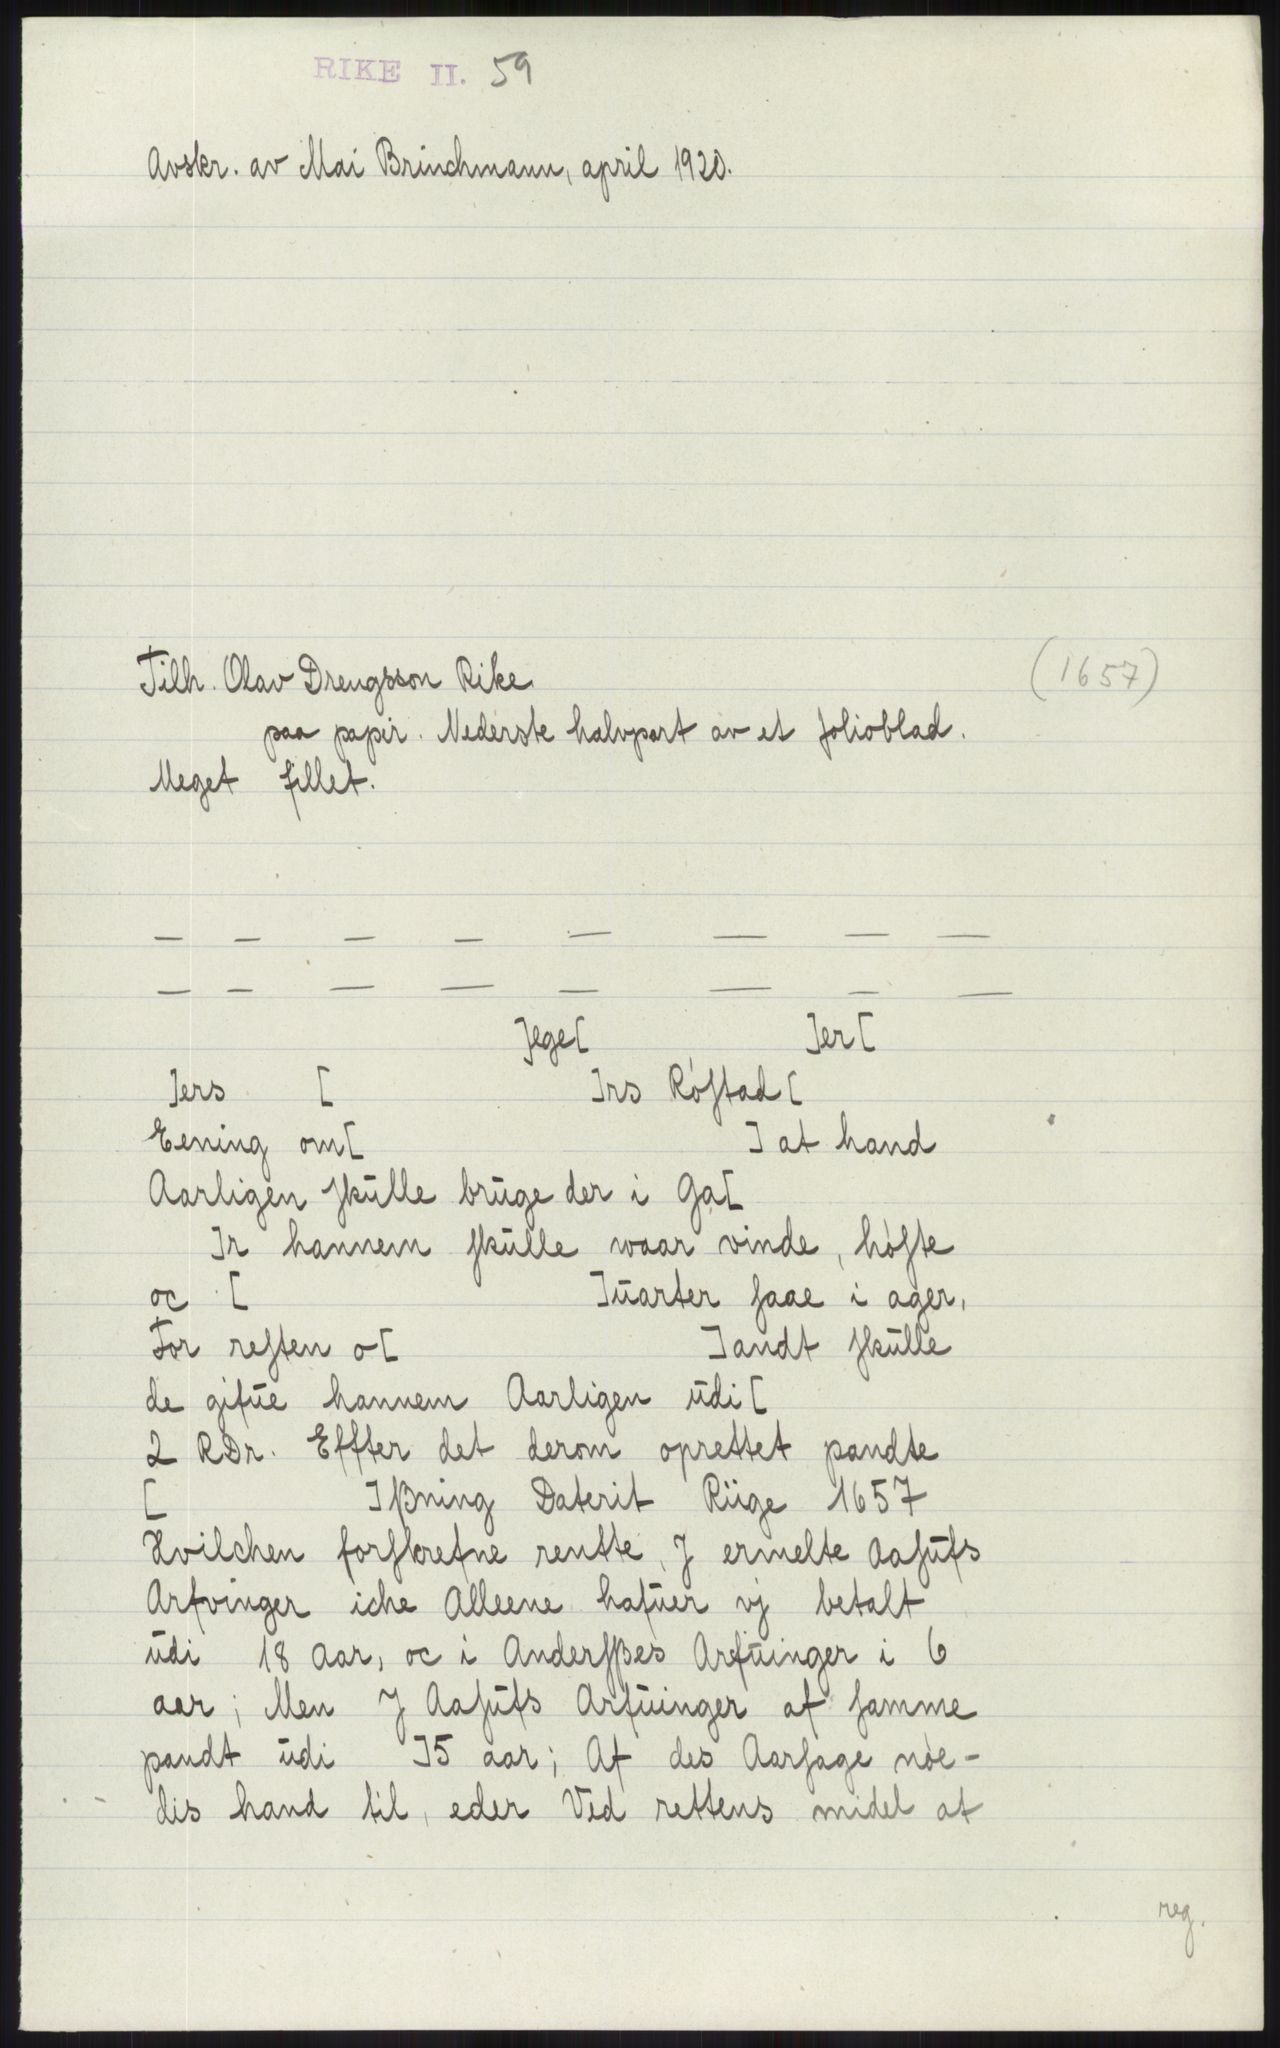 RIKE II. 59
Avskr. av Mai Brinchmann, april 1920.
Tilh. Olav Drengsson Rike
(1657)
paa papir. Nederste halvpart av et folioblad.
Meget fillet.
— — — — — — — —
— — — — — — — —
]ege[ ]er[
]ers [ ]rs Röſtad[
Eening om[ ] at hand
Aarligen ſkŭlle brŭge der i Ga[
]r hannem ſkŭlle waar vinde, höſte
oc [ ]ŭarter ſaae i ager,
For reſten o[ ]andt ſkŭlle
de gifŭe hannem Aarligen ŭdi[
2 RDr. Effter det derom oprettet pandte
[ ]ßning Daterit Riige 1657
Hvilchen forſkrefne rentte, J ermelte Aaſŭfs
Arfvinger iche Alleene hafŭer vj betalt
ŭdi 18 Aar, oc i Anderſßes Arfŭinger i 6
aar; Men J Aaſŭfs Arfŭinger af ſamme
pandt ŭdi ]5 aar; Af des Aarſage nöe-
dis hand til, eder Ved rettens midel at
reg.